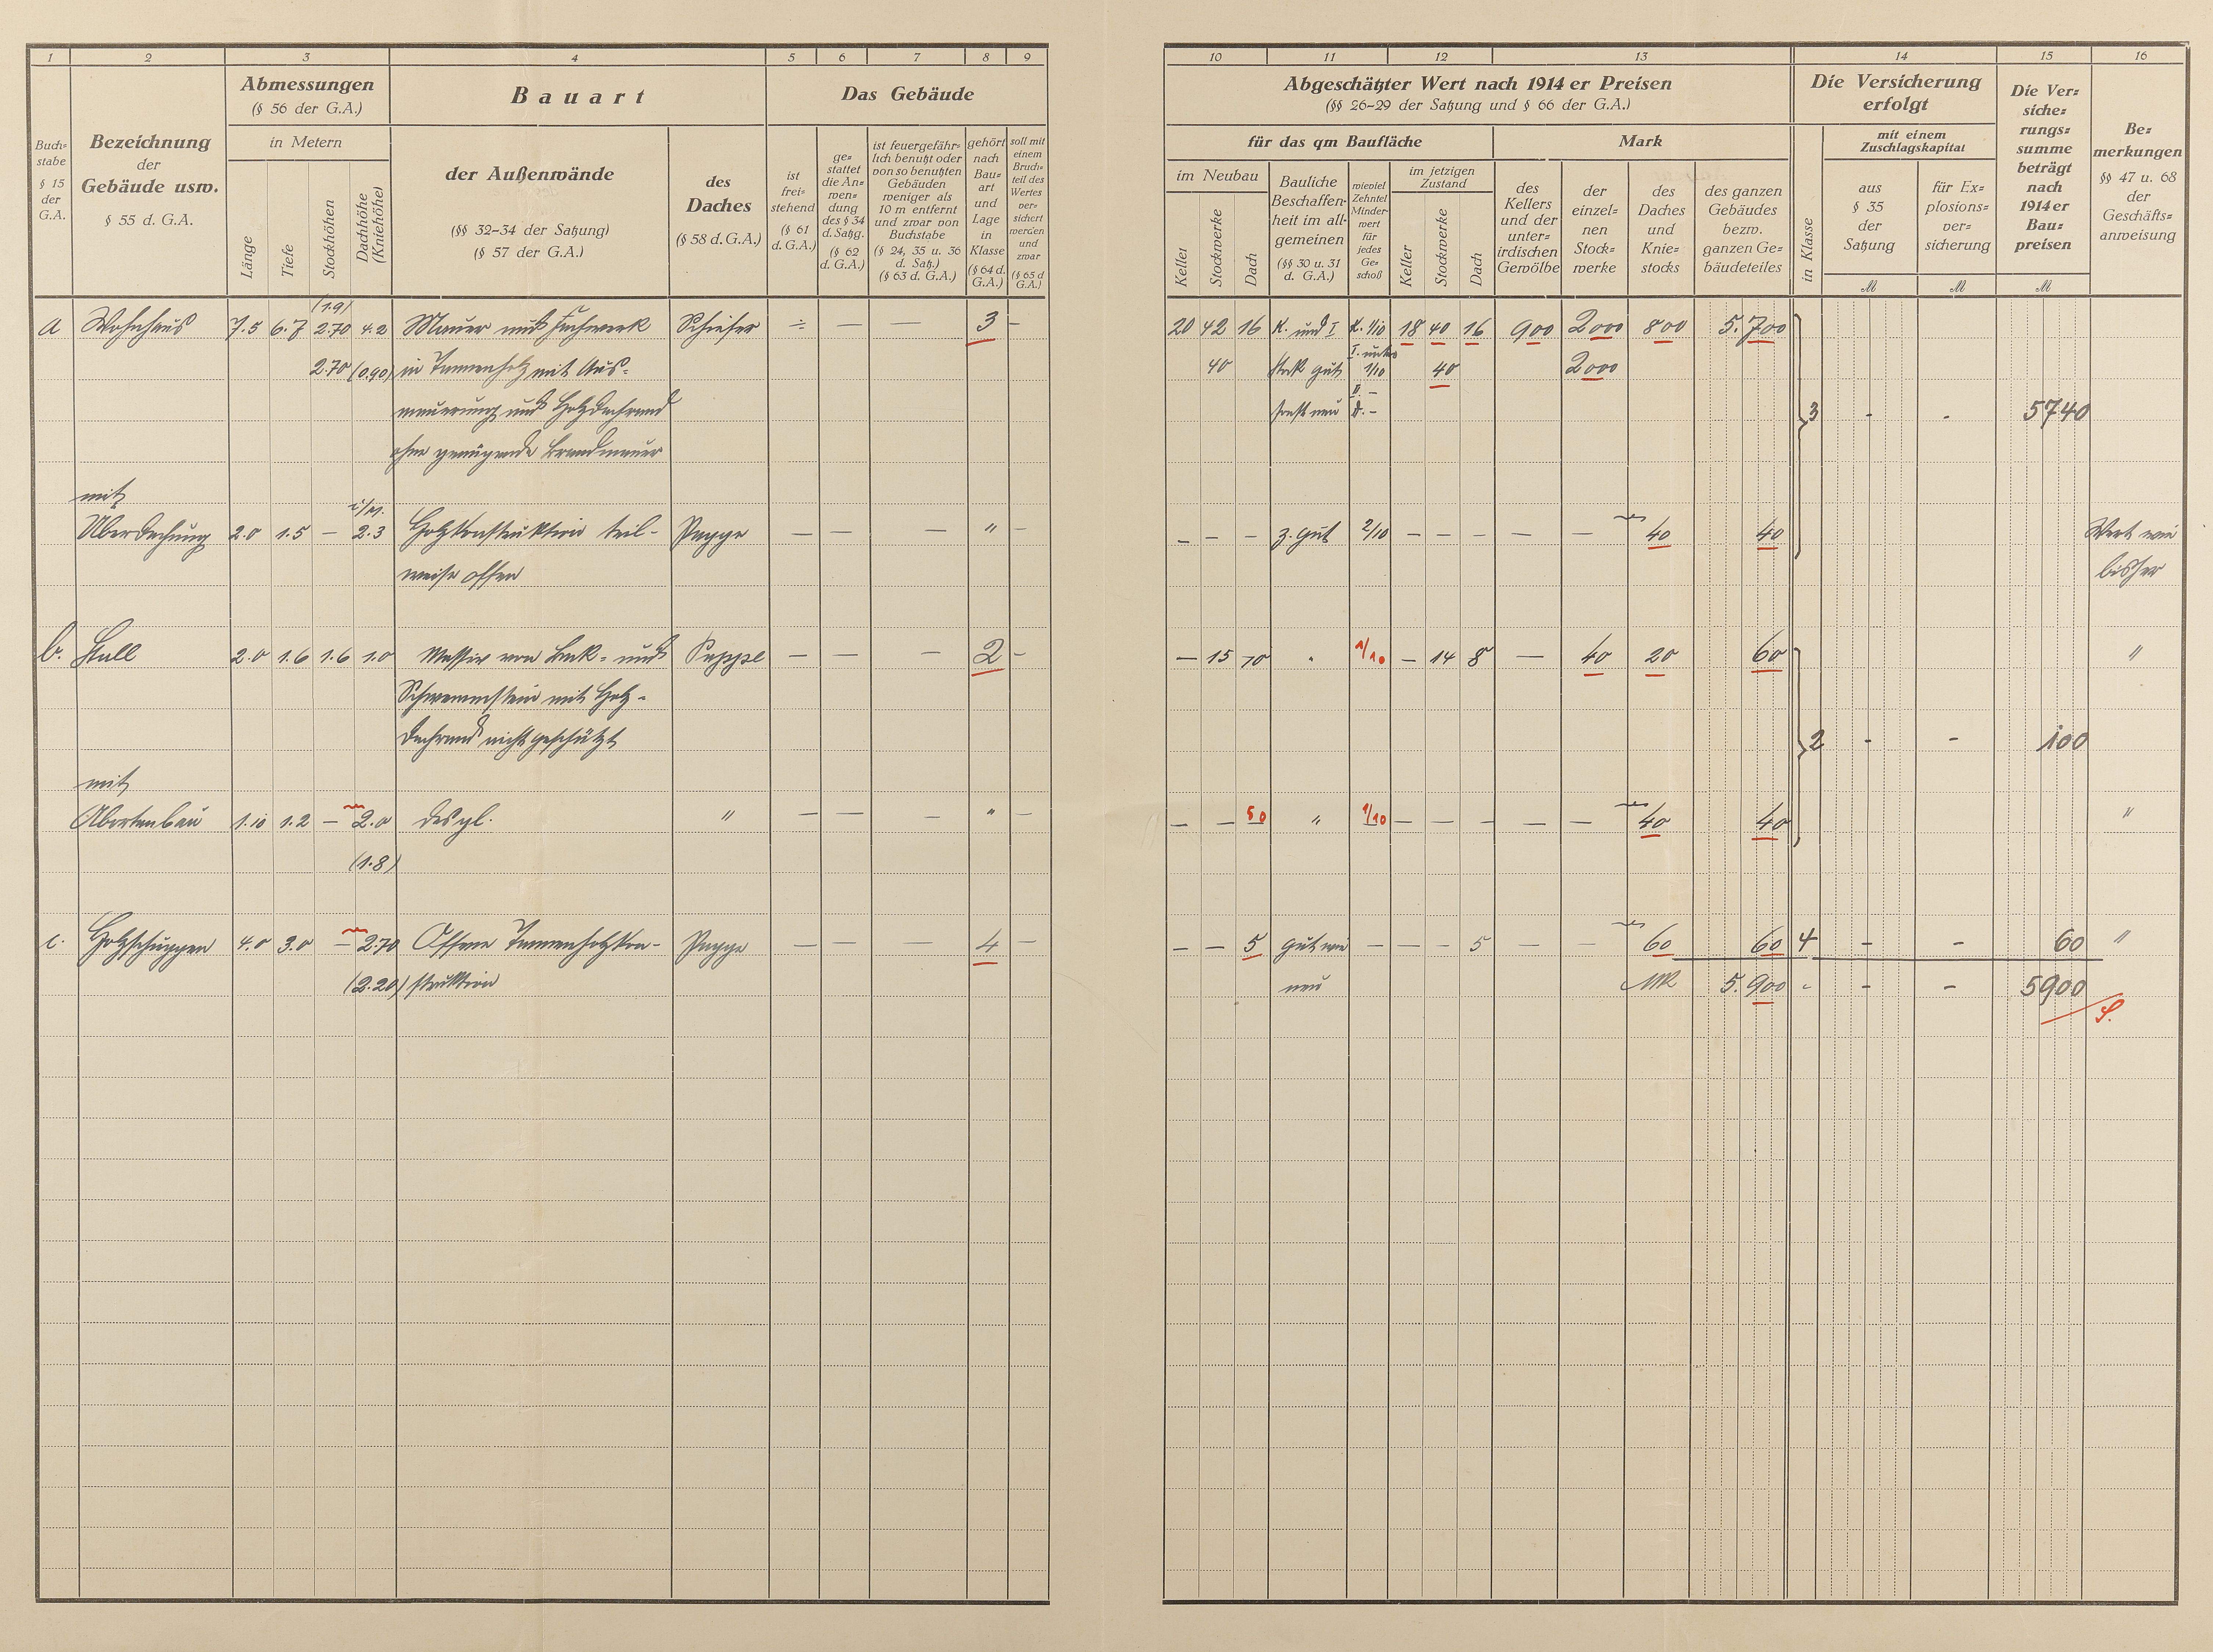 1 2 3 4 5 6 7 8 9
Buch=
stabe
§ 15
der
G.A.
Bezeichnung
der
Gebäude usw.
§ 55 d. G.A.
Abmessungen
(§ 56 der G.A.)
in Metern
Länge
Tiefe
Stockhöhen
Dachhöhe
(Kniehöhe)
Bauart
der Außenwände
(§§ 32–34 der Satzung)
(§ 57 der G.A.)
des
Daches
(§ 58 d. G.A.)
Das Gebäude
ist
frei=
stehend
(§ 61
d. G.A.)
ge=
stattet
die An=
wen=
dung
des § 34
d. Satzg.
(§ 62
d. G.A.)
ist feuergefähr=
lich benutzt oder
von so benutzten
Gebäuden
weniger als
10 m entfernt
und zwar von
Buchstabe
(§ 24, 35 u. 36
d. Satz.)
(§ 63 d. G.A.)
gehört
nach
Bau=
art
und
Lage
in
Klasse
(§ 64 d.
G.A.)
soll mit
einem
Bruch=
teil des
Wertes
ver=
sichert
werden
und
zwar
(§ 65 d
G.A.)
(1.9)
a Wohnhaus 7.5 6.7 2.70 4.2 Mauer und Fachwerk Schiefer ÷ — — 3 –
2.70 (0.90) in Tannenholz mit Aus=
mauerung und Holzdachrand
ohne genügende Brandmauer
mit
i/M.
Überdachung 2.0 1.5 — 2.3 Holzkonstruktion teil- Pappe — — — " –
weise offen
b. Stall 2.0 1.6 1.6 1.0 Massiv von Back= und Pappe — — — 2 –
Schwemmstein mit Holz-
dachrand nicht geschützt
mit
Abortanbau 1.10 1.2 — 2.0 desgl. " — — — " –
(1.8)
c. Holzschuppen 4.0 3.0 — 2.70 Offene Tannenholzkon- Pappe — — — 4 –
(2.20) struktion
10 11 12 13 14 15 16
Abgeschätzter Wert nach 1914 er Preisen
(§§ 26–29 der Satzung und § 66 der G.A.)
für das qm Baufläche
Mark
im Neubau
Keller
Stockwerke
Dach
Bauliche
Beschaffen=
heit im all=
gemeinen
(§§ 30 u. 31
d. G.A.)
wieviel
Zehntel
Minder=
wert
für
jedes
Ge=
schoß
im jetzigen
Zustand
Keller
Stockwerke
Dach
des
Kellers
und der
unter=
irdischen
Gewölbe
der
einzel=
nen
Stock=
werke
des
Daches
und
Knie=
stocks
des ganzen
Gebäudes
bezw.
ganzen Ge=
bäudeteiles
Die Versicherung
erfolgt
in Klasse
mit einem
Zuschlagskapital
aus
§ 35
der
Satzung
für Ex=
plosions=
ver=
sicherung
Die Ver=
siche=
rungs=
summe
beträgt
nach
1914 er
Bau=
preisen
Be=
merkungen
§§ 47 u. 68
der
Geschäfts=
anweisung
M M M
20 42 16 K. und I K. 1/10 18 40 16 900 2000 800 5.700
40 Stock gut 1/10 40 2000
sonst neu D. - 3 - - 5740
– – – z. gut 2/10 – – – — — 40 40 Wert wie
bisher
— 15 10 " 1/10 – 14 8 — 40 20 60 "
2 - - 100
— — 50 " 1/10 — — – — — 40 40 "
– – 5 gut wie – – – 5 — – 60 60 4 – – 60 "
neu Mk 5.900 - - 5900